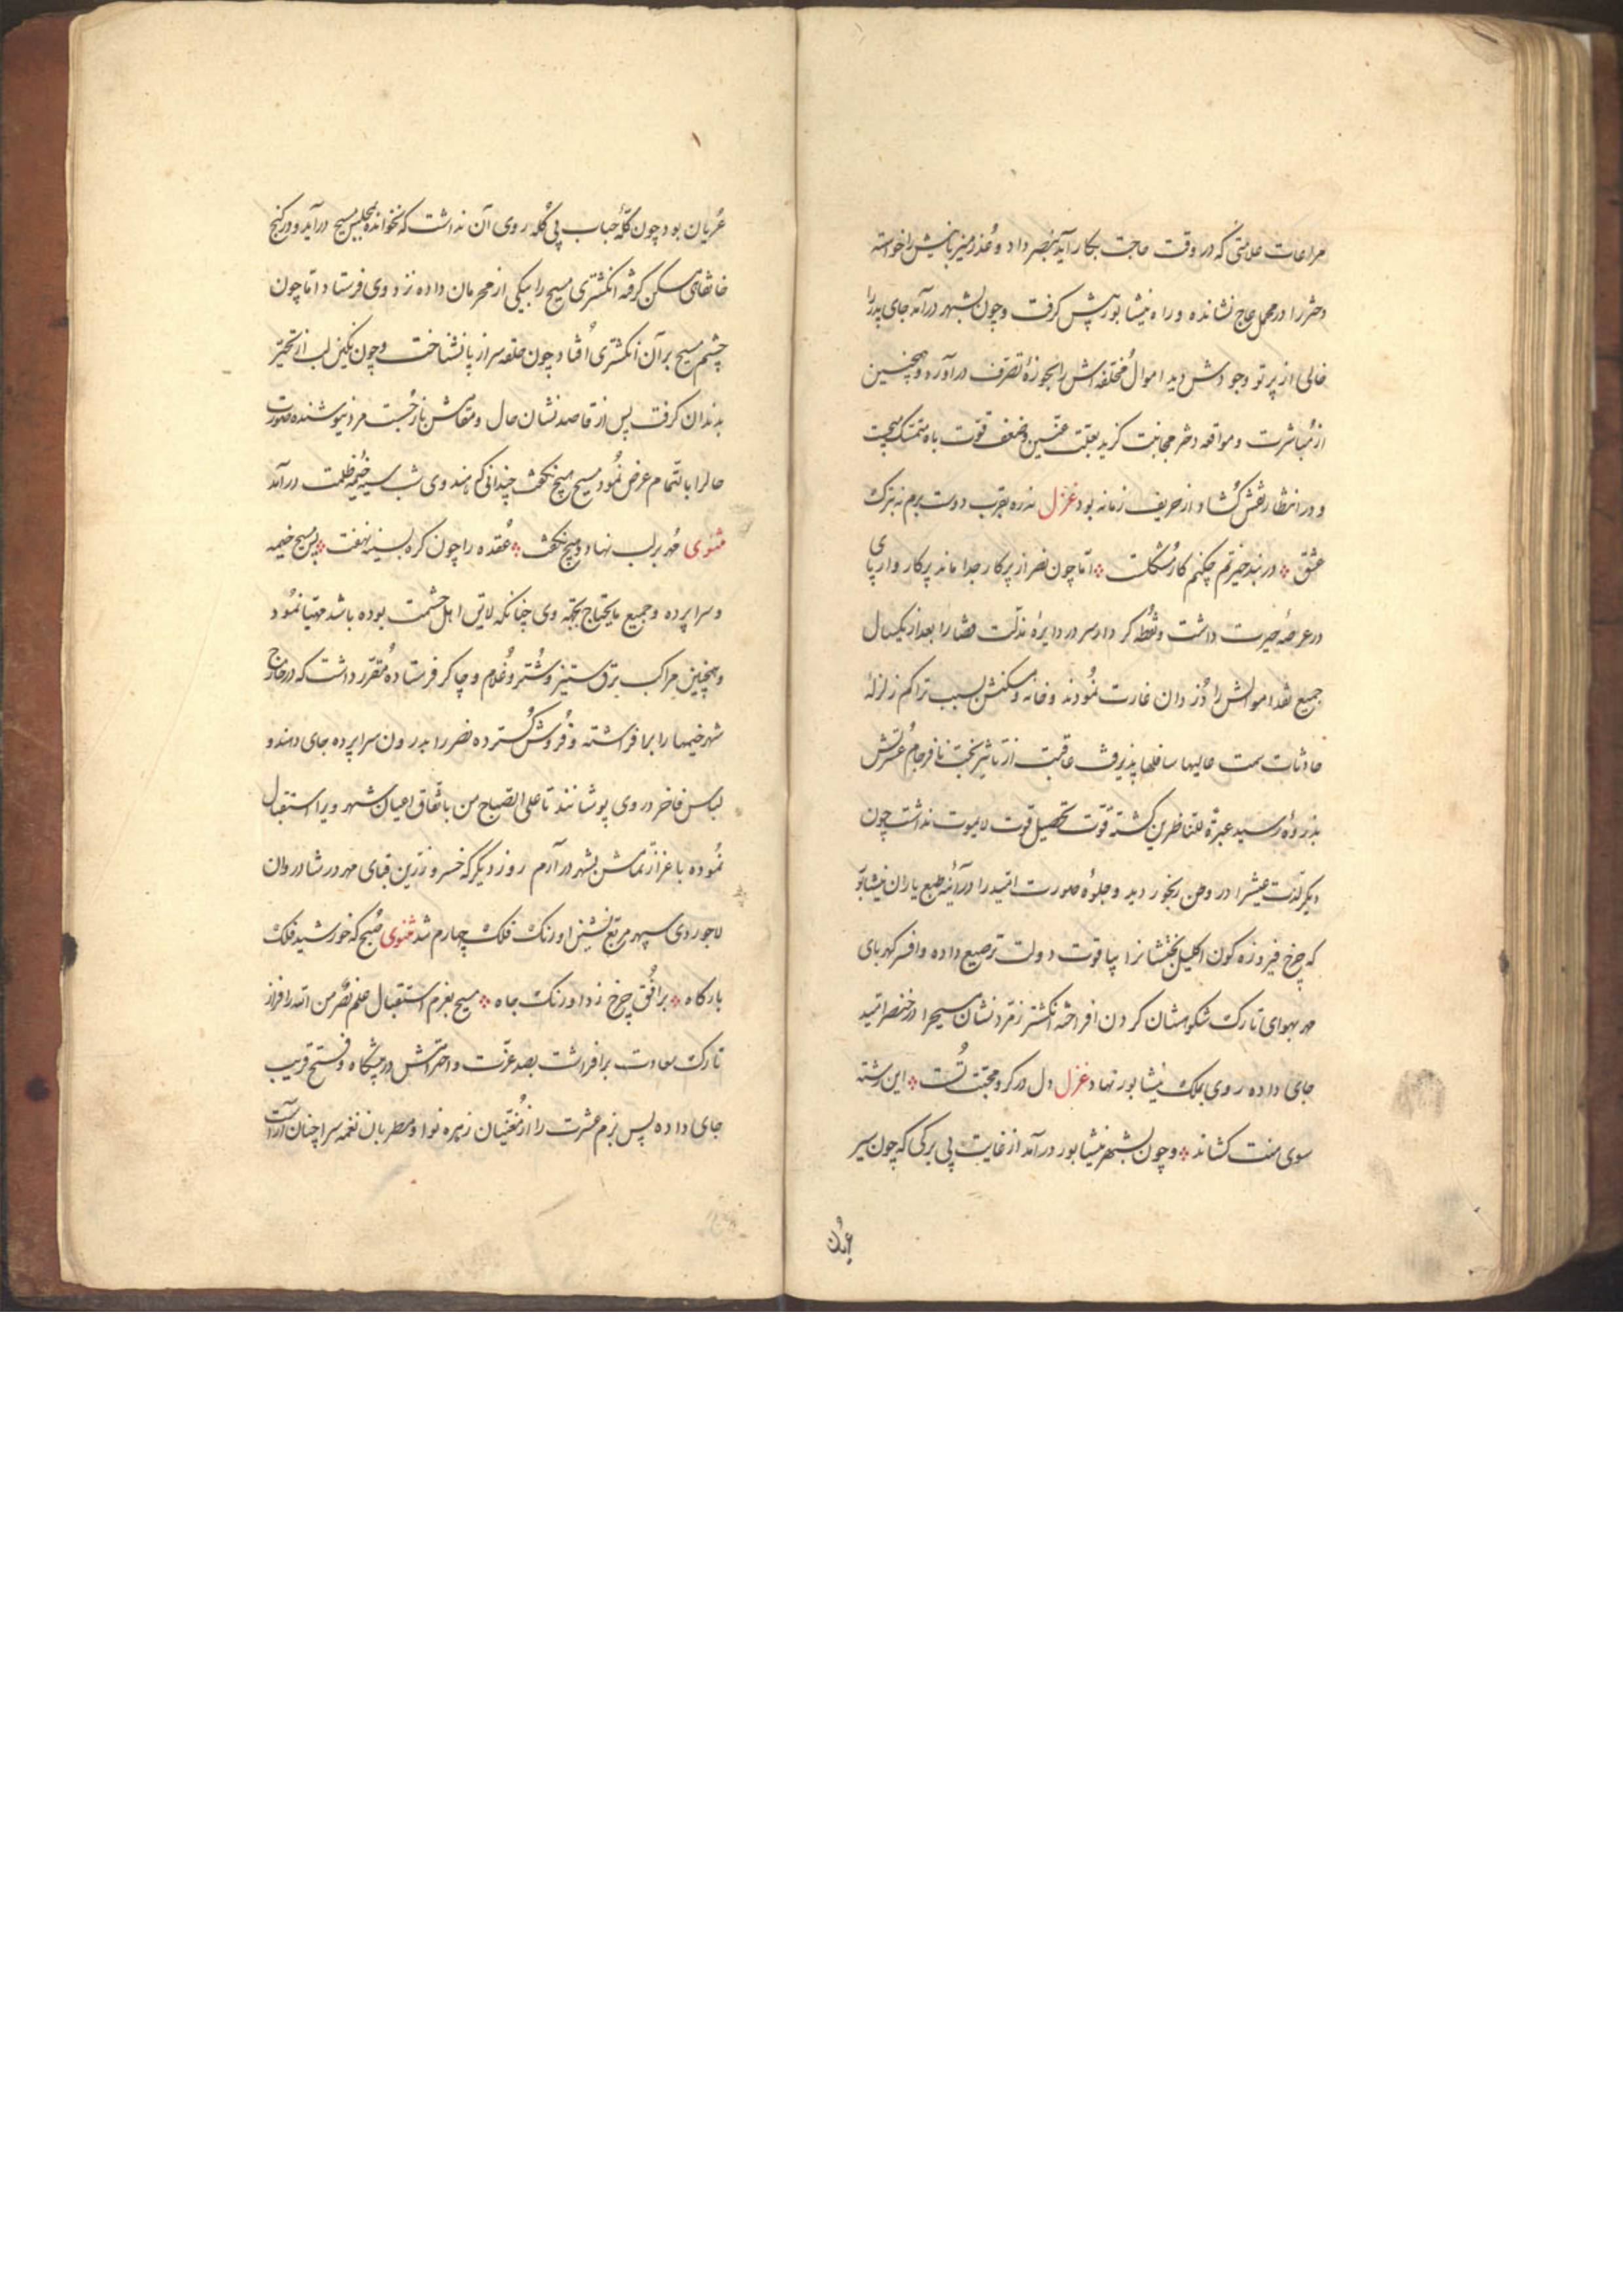 مراعات علامتی که در وقت حاجت بکار آید بنصر داد و عذر میزبانیش را خواسته
دختر را در محمل عاج نشانده و راه نیشابور پیش گرفت و چون بشهر درآمد جای پدر را
خالی از پرتو وجودش دید اموال مخلفه اش را بحوزهٔ تصرف درآورده و همچنین
از مباشرت و مواقعه دختر مجانبت گزید بعلت عنین و ضعف قوت باه متمسک میجست
و در انتظار نقش گشاد از حریف زمانه بود غزل نه ره بقرب دوست برم نه بترک
عشق در بند حیرتم چکنم کار مشکلست اما چون نصر از پرکار جدا ماند پرکار وار پای
در عرصهٔ حیرت داشت و نقطه کردار سر در دایرهٔ مذلت قضا را بعد از یکسال
جمیع نقد اموالش را دزدان غارت نمودند و خانه و مسکنش بسبب تراکم زلزلهٔ
حادثات سمت عالیها سافلها پذیرفت عاقبت از تاثیر بخت نافرجام عسرتش
بذروهٔ رسید عبرة للناظرین گشته قوت تحصیل قوت لایموت نداشت چون
دیگر لذت عیش را در وطن رنجور دید و جلوهٔ صورت امید را در آئینهٔ طبع یاران نیشابور
که چرخ فیروزه گون اکلیل بختشانرا بیاقوت دولت ترصیع داده و افسر کهربای
مهر بهوای تارک شکوهشان گردن افراخته انگشتر زمرد نشان مسیح را در خنصر امید
جای داده روی بملک نیشابور نهاد غزل دل در گرو محبت تست این رشته
سوی منت کشاند و چون بشهر نیشابور درآمد از غایت بی برگی که چون سیر
عریان
عریان بود چون کلهٔ حباب بی کله روی آن نداشت که نخوانده بمجلس مسیح درآید و در کنج
خانقاهی مسکن گرفته انگشتری مسیح را بیکی از محرمان داده نزد وی فرستاد اما چون
چشم مسیح بر آن انگشتری افتاد چون حلقه سر از پا نشناخت و چون نگین لب از تحیر
بدندان گرفت پس از قاصد نشان حال و مقامش باز جست مرد نیوشنده صورت
حالرا بالتمام عرض نمود مسیح هیچ نگفت چندانی که هندوی شب سیه خیمهٔ ظلمت درآمد
مثنوی مهر بر لب نهاد و هیچ نگفت عقده را چون گره بسینه نهفت پس مسیح خیمه
و سراپرده و جمیع مایحتاج بجهة وی چنانکه لایق اهل حشمت بوده باشد مهیا نمود
و همچنین مراکب برق ستیز و شتر و غلام و چاکر فرستاده مقرر داشت که در خارج
شهر خیمها را برافراشته و فروش گسترده نصر را بدرون سراپرده جای دهند و
لباس فاخر در وی پوشانند تا علی الصباح من باتفاق اعیان شهر ویرا استقبال
نموده باعزاز تمامش بشهر درآرم روز دیگر که خسرو زرین قبای مهر در شادروان
لاجوردی سپهر مربع نشین اورنگ فلک چهارم شد مثنوی صبح که خورشید فلک
بارگاه بر افق چرخ زد اورنگ جاه مسیح بعزم استقبال علم نصر من الله را فراز
تارک سعادت برافراشت بصد عزت و احترامش در پیشگاه و فتح قریب
جای داده پس بزم عشرت را از مغنیان زهره نوا و مطربان نغمه سرا چنان آراست